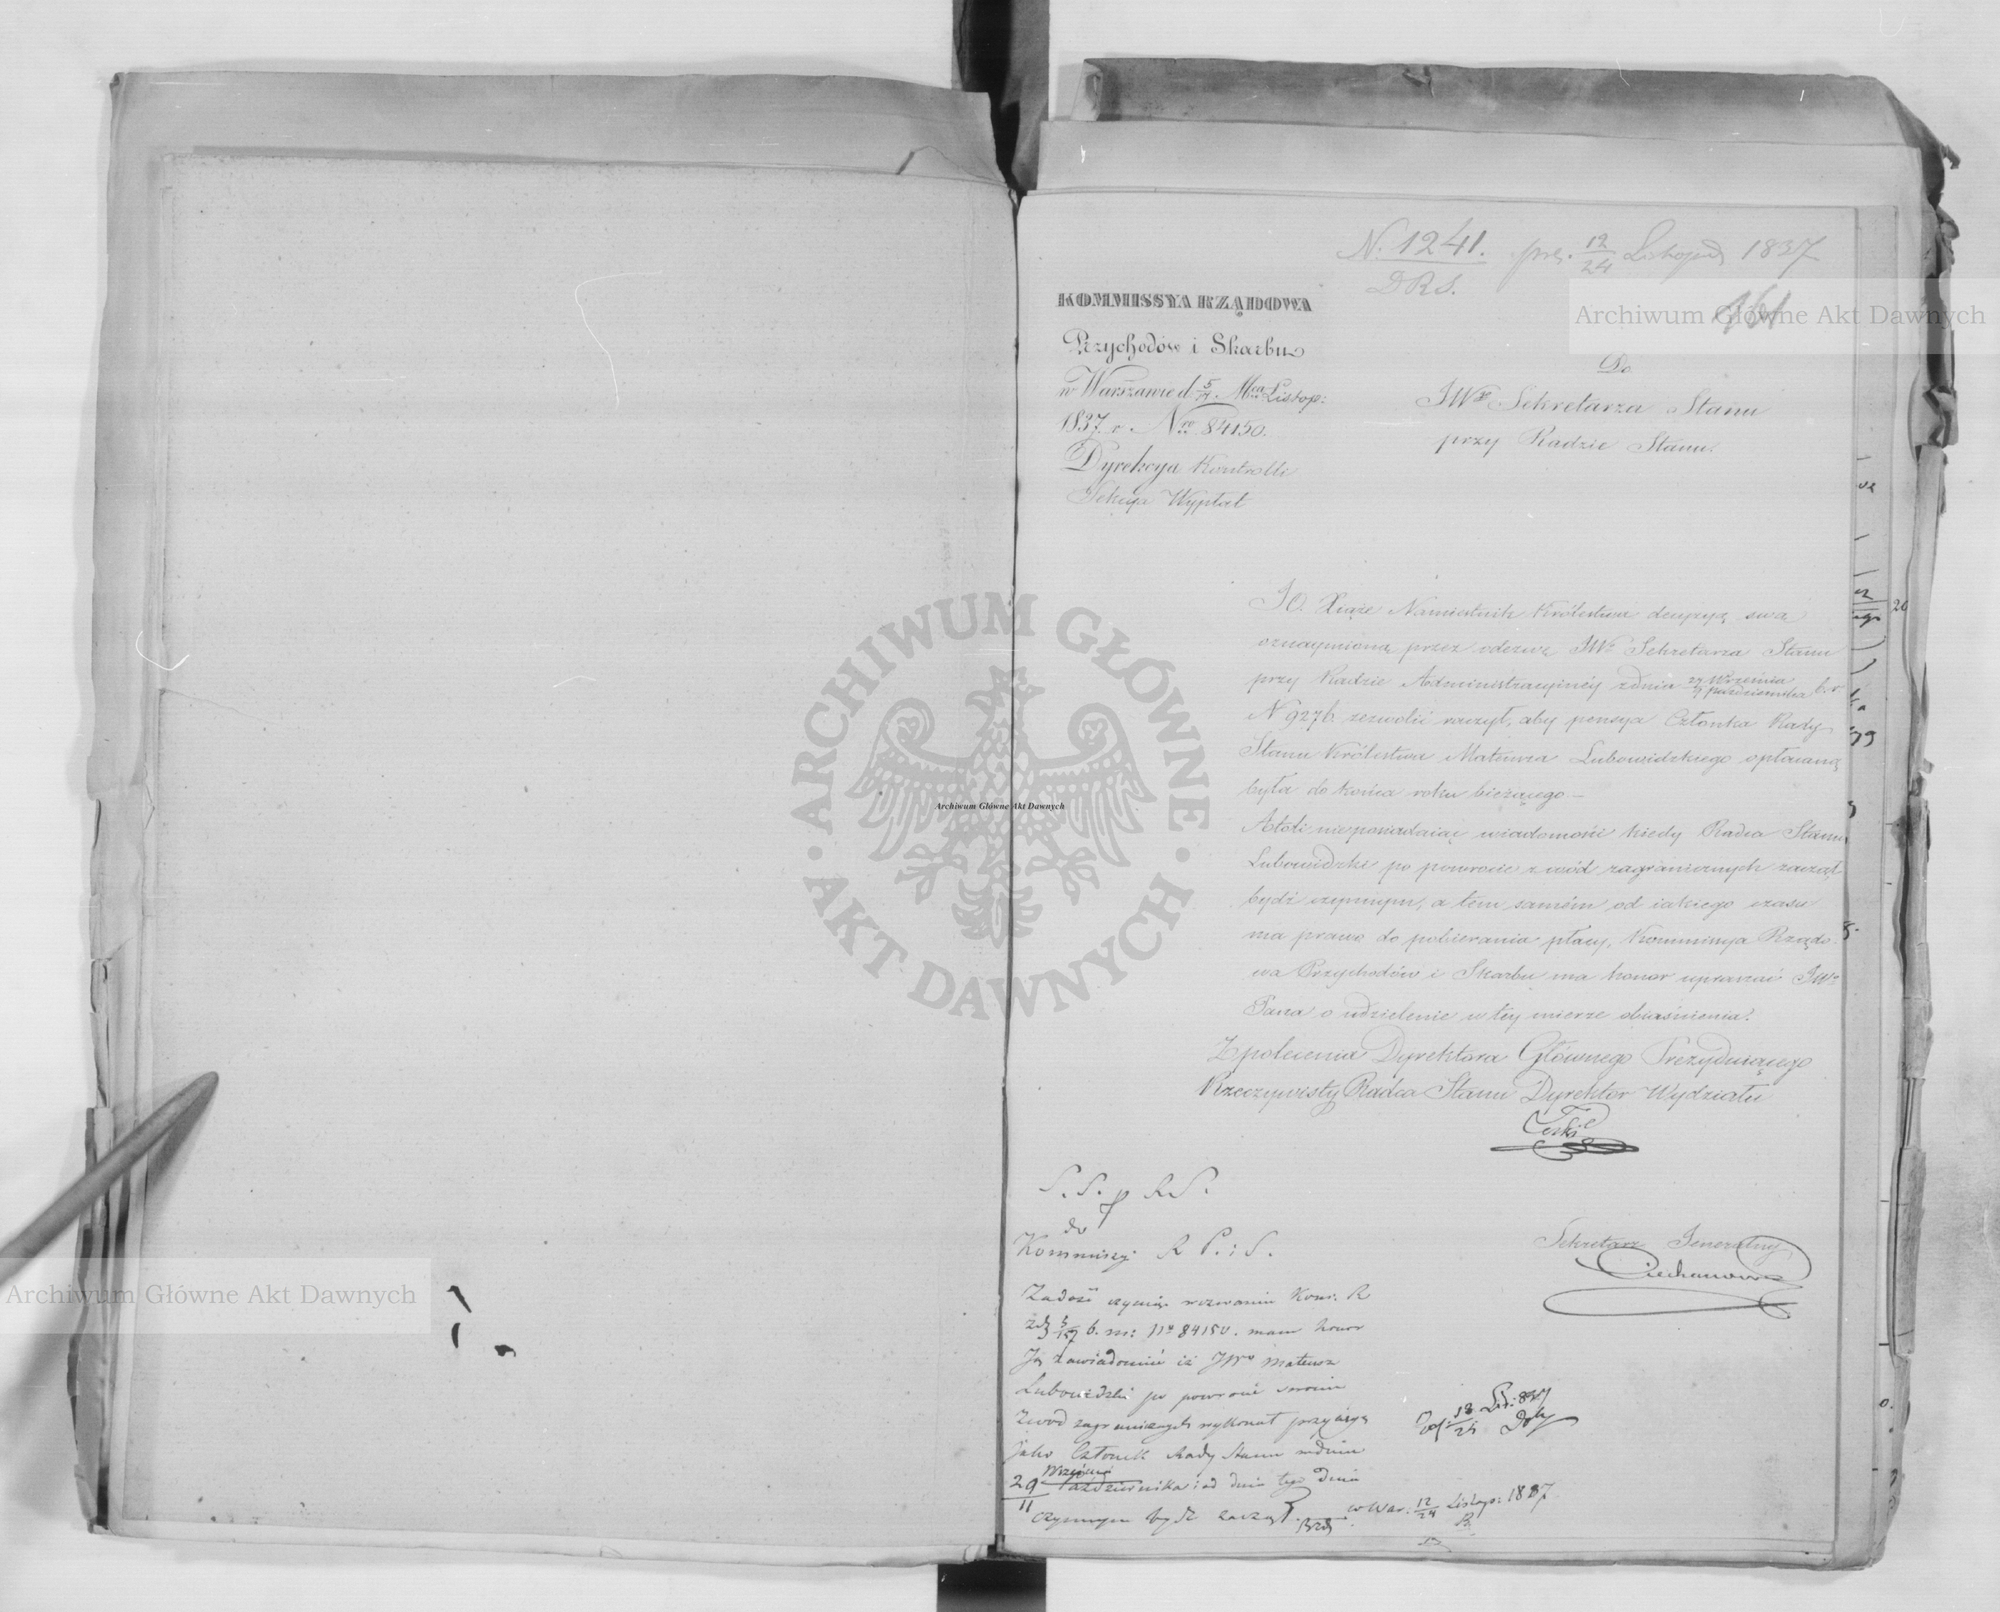 N. 1241. prez. 12/24 Listopad 1837
D R S.
161
KOMMISSYA RZĄDOWA
Przychodów i Skarbu
w Warszawie d. 5/17. Mca Listop:
1837. r. Nro 84150.
Dyrekcya Kontrolli
Sekcya Wypłat
Do
JWo Sekretarza Stanu
przy Radzie Stanu.
JO. Xiąże Namiestnik Królestwa decyzyą swą
oznaymioną przez odezwę JWo Sekretarza Stanu
przy Radzie Administracyinéy zdnia 27 Września / 9 Października b. r.
N 9276. zezwolić raczył, aby pensya Członka Rady
Stanu Królestwa Mateusza Lubowidzkiego opłacaną
była do końca roku bieżącego —
Atoli nieposiadaiąc wiadomości kiedy Radca Stanu
Lubowidzki po powrocie z wód zagranicznych zaczął
bydź czynnym, a tem samém od iakiego czasu
ma prawo do pobierania płacy, Kommissya Rządo-
wa Przychodów i Skarbu ma honor upraszać JWo
Pana o udzielenie w téy mierze obiaśnienia.
Z polecenia Dyrektora Głównego Prezyduiącego
Rzeczywisty Radca Stanu Dyrektor Wydziału
Sekretarz Jeneralny
Ciechanowski
S. S. p R S.
do
Kommissyi R P. i S.
Zadość czyniąc wezwaniu Kom. R
zd. 5/17 b. m: No 84150. mam honor
Ją zawiadomić iż JWo Mateusz
Lubowidzki po powrocie swoim
z wód zagranicznych wykonał przysięgę
jako Członek Rady Stanu w dniu
29/11 Września Października i od dnia tego dnia
czynnym bydź zaczął.
w War. 12/24 Listop: 1837
Od: 12/24 Lis: 837
Archiwum Główne Akt Dawnych
Archiwum Główne Akt Dawnych
Archiwum Główne Akt Dawnych
ARCHIWUM GŁÓWNE · AKT DAWNYCH ·